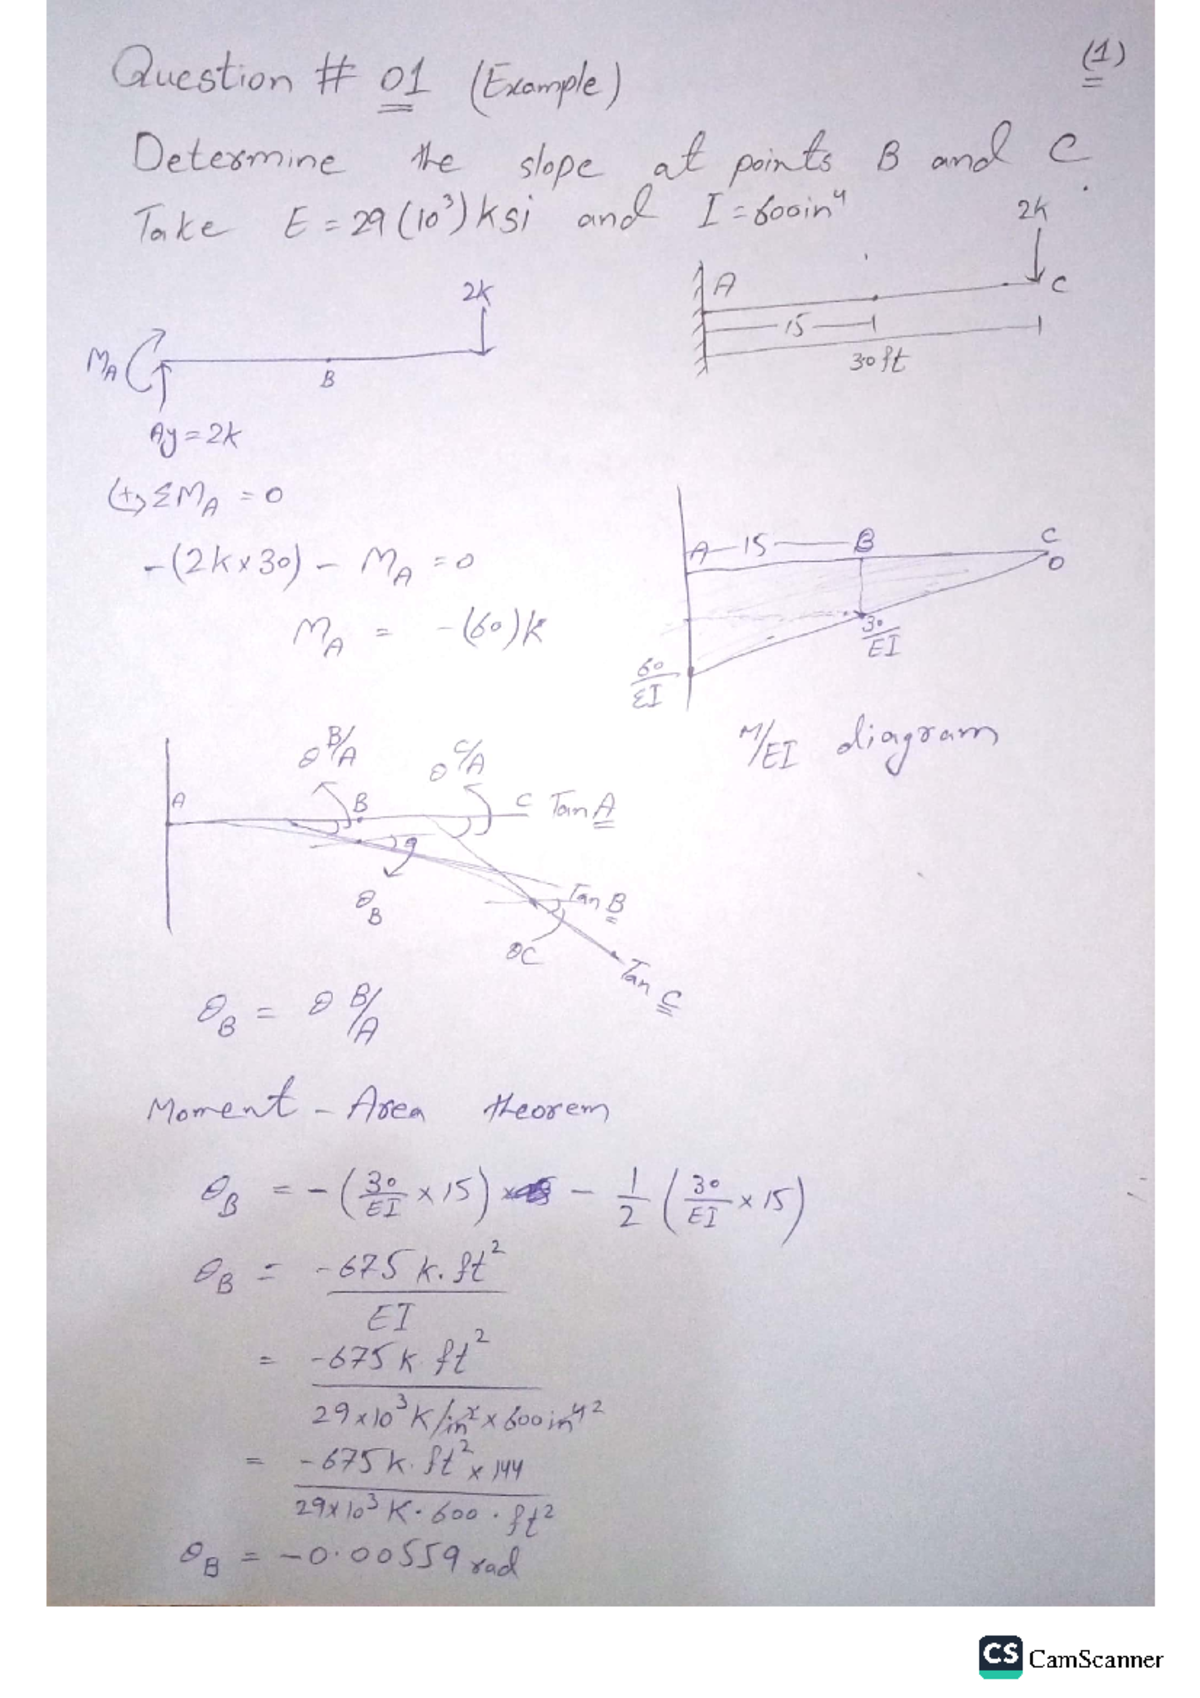 (1)
Question # 01 (Example)
Determine the slope at points B and C.
Take E = 29(10³)ksi and I = 600in⁴
2k
A
C
15
30ft
2k
M_A
B
Ay = 2k
(+) ΣM_A = 0
-(2k×30) - M_A = 0
M_A = -(60)k
A 15 B C
0
30/EI
60/EI
M/EI diagram
θ B/A
θ C/A
A
B
C Tan A
Tan B
θ_B
θC
Tan C
θ_B = θ B/A
Moment - Area theorem
θ_B = -(30/EI × 15) - 1/2 (30/EI × 15)
θ_B = -675 k.ft²
EI
= -675 k. ft²
29×10³ K/in² × 600in⁴ ²
= -675k. ft² × 144
29×10³ K. 600 . ft²
θ_B = -0.00559 rad
CS CamScanner